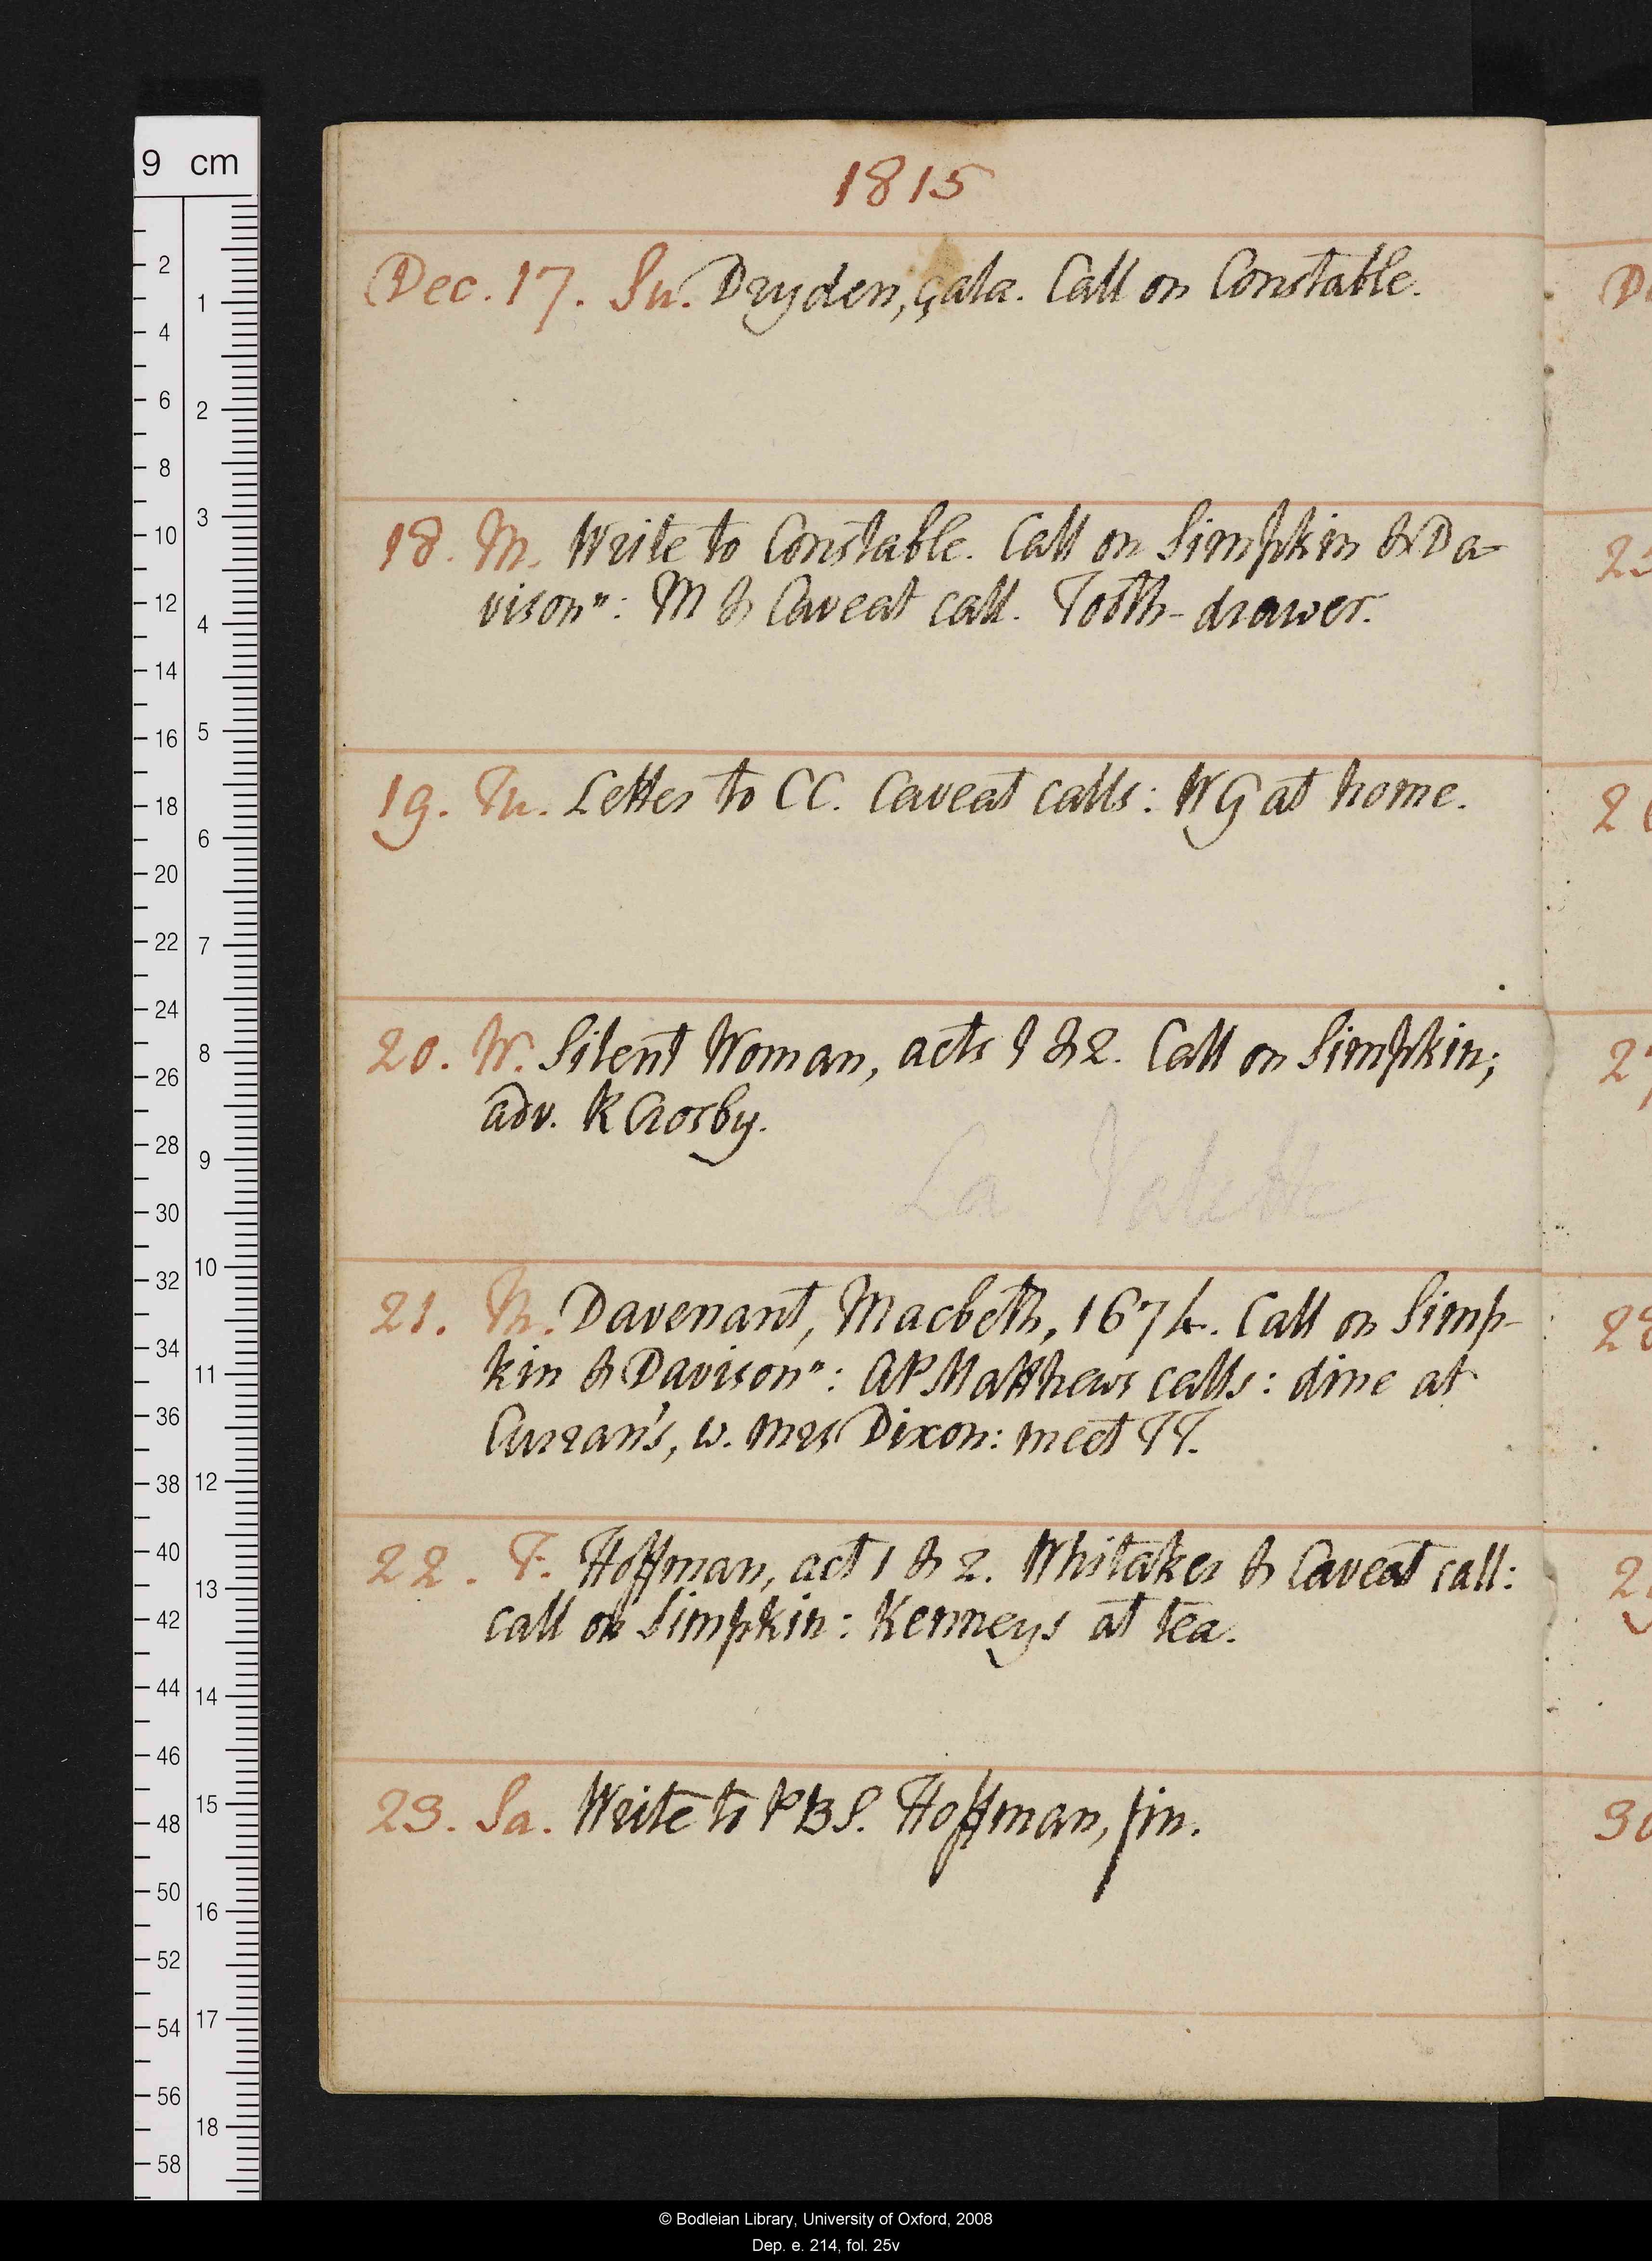 1815
Dec. 17. Su. Dryden, çala. Call on Constable.
18. M. Write to Constable. Call on Simpkin & Da-
vison": M & Caveat call. Tooth-drawer.
19. Tu. Letter to CC. Caveat calls: WG at home.
20. W. Silent Woman, acts 1 & 2. Call on Simpkin;
adv. R Crosby.
La Valette
21. Th. Davenant, Macbeth, 1674. Call on Simp-
kin & Davison": AP Matthews calls: dine at
Curran's, w. Mrs Dixon: meet TT.
22. F. Hoffman, act 1 & 2. Whitaker & Caveat call:
call on Simpkin: Kenneys at tea.
23. Sa. Write to PBS. Hoffman, fin.
9 cm
2
4
6
8
10
12
14
16
18
20
22
24
26
28
30
32
34
36
38
40
42
44
46
48
50
52
54
56
58
1
2
3
4
5
6
7
8
9
10
11
12
13
14
15
16
17
18
© Bodleian Library, University of Oxford, 2008
Dep. e. 214, fol. 25v